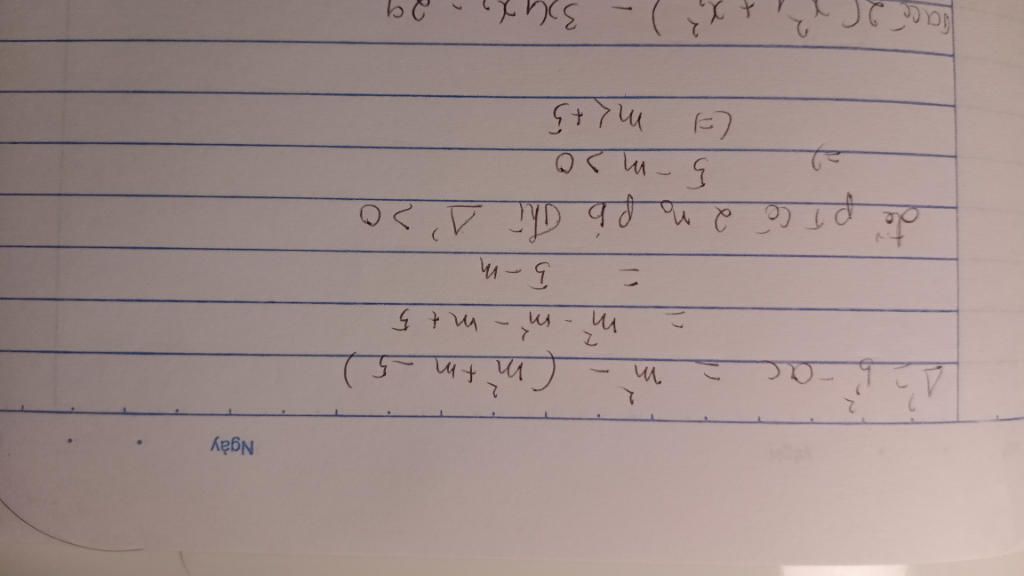 Ngày
Δ' = b'² - ac = m² - (m² + m - 5)
= m² - m² - m + 5
= 5 - m
để pt có 2 n₀ pb thì Δ' > 0
=> 5 - m > 0
(=) m < +5
2(x²₁ + x²₂) - 3x₁x₂ = 29